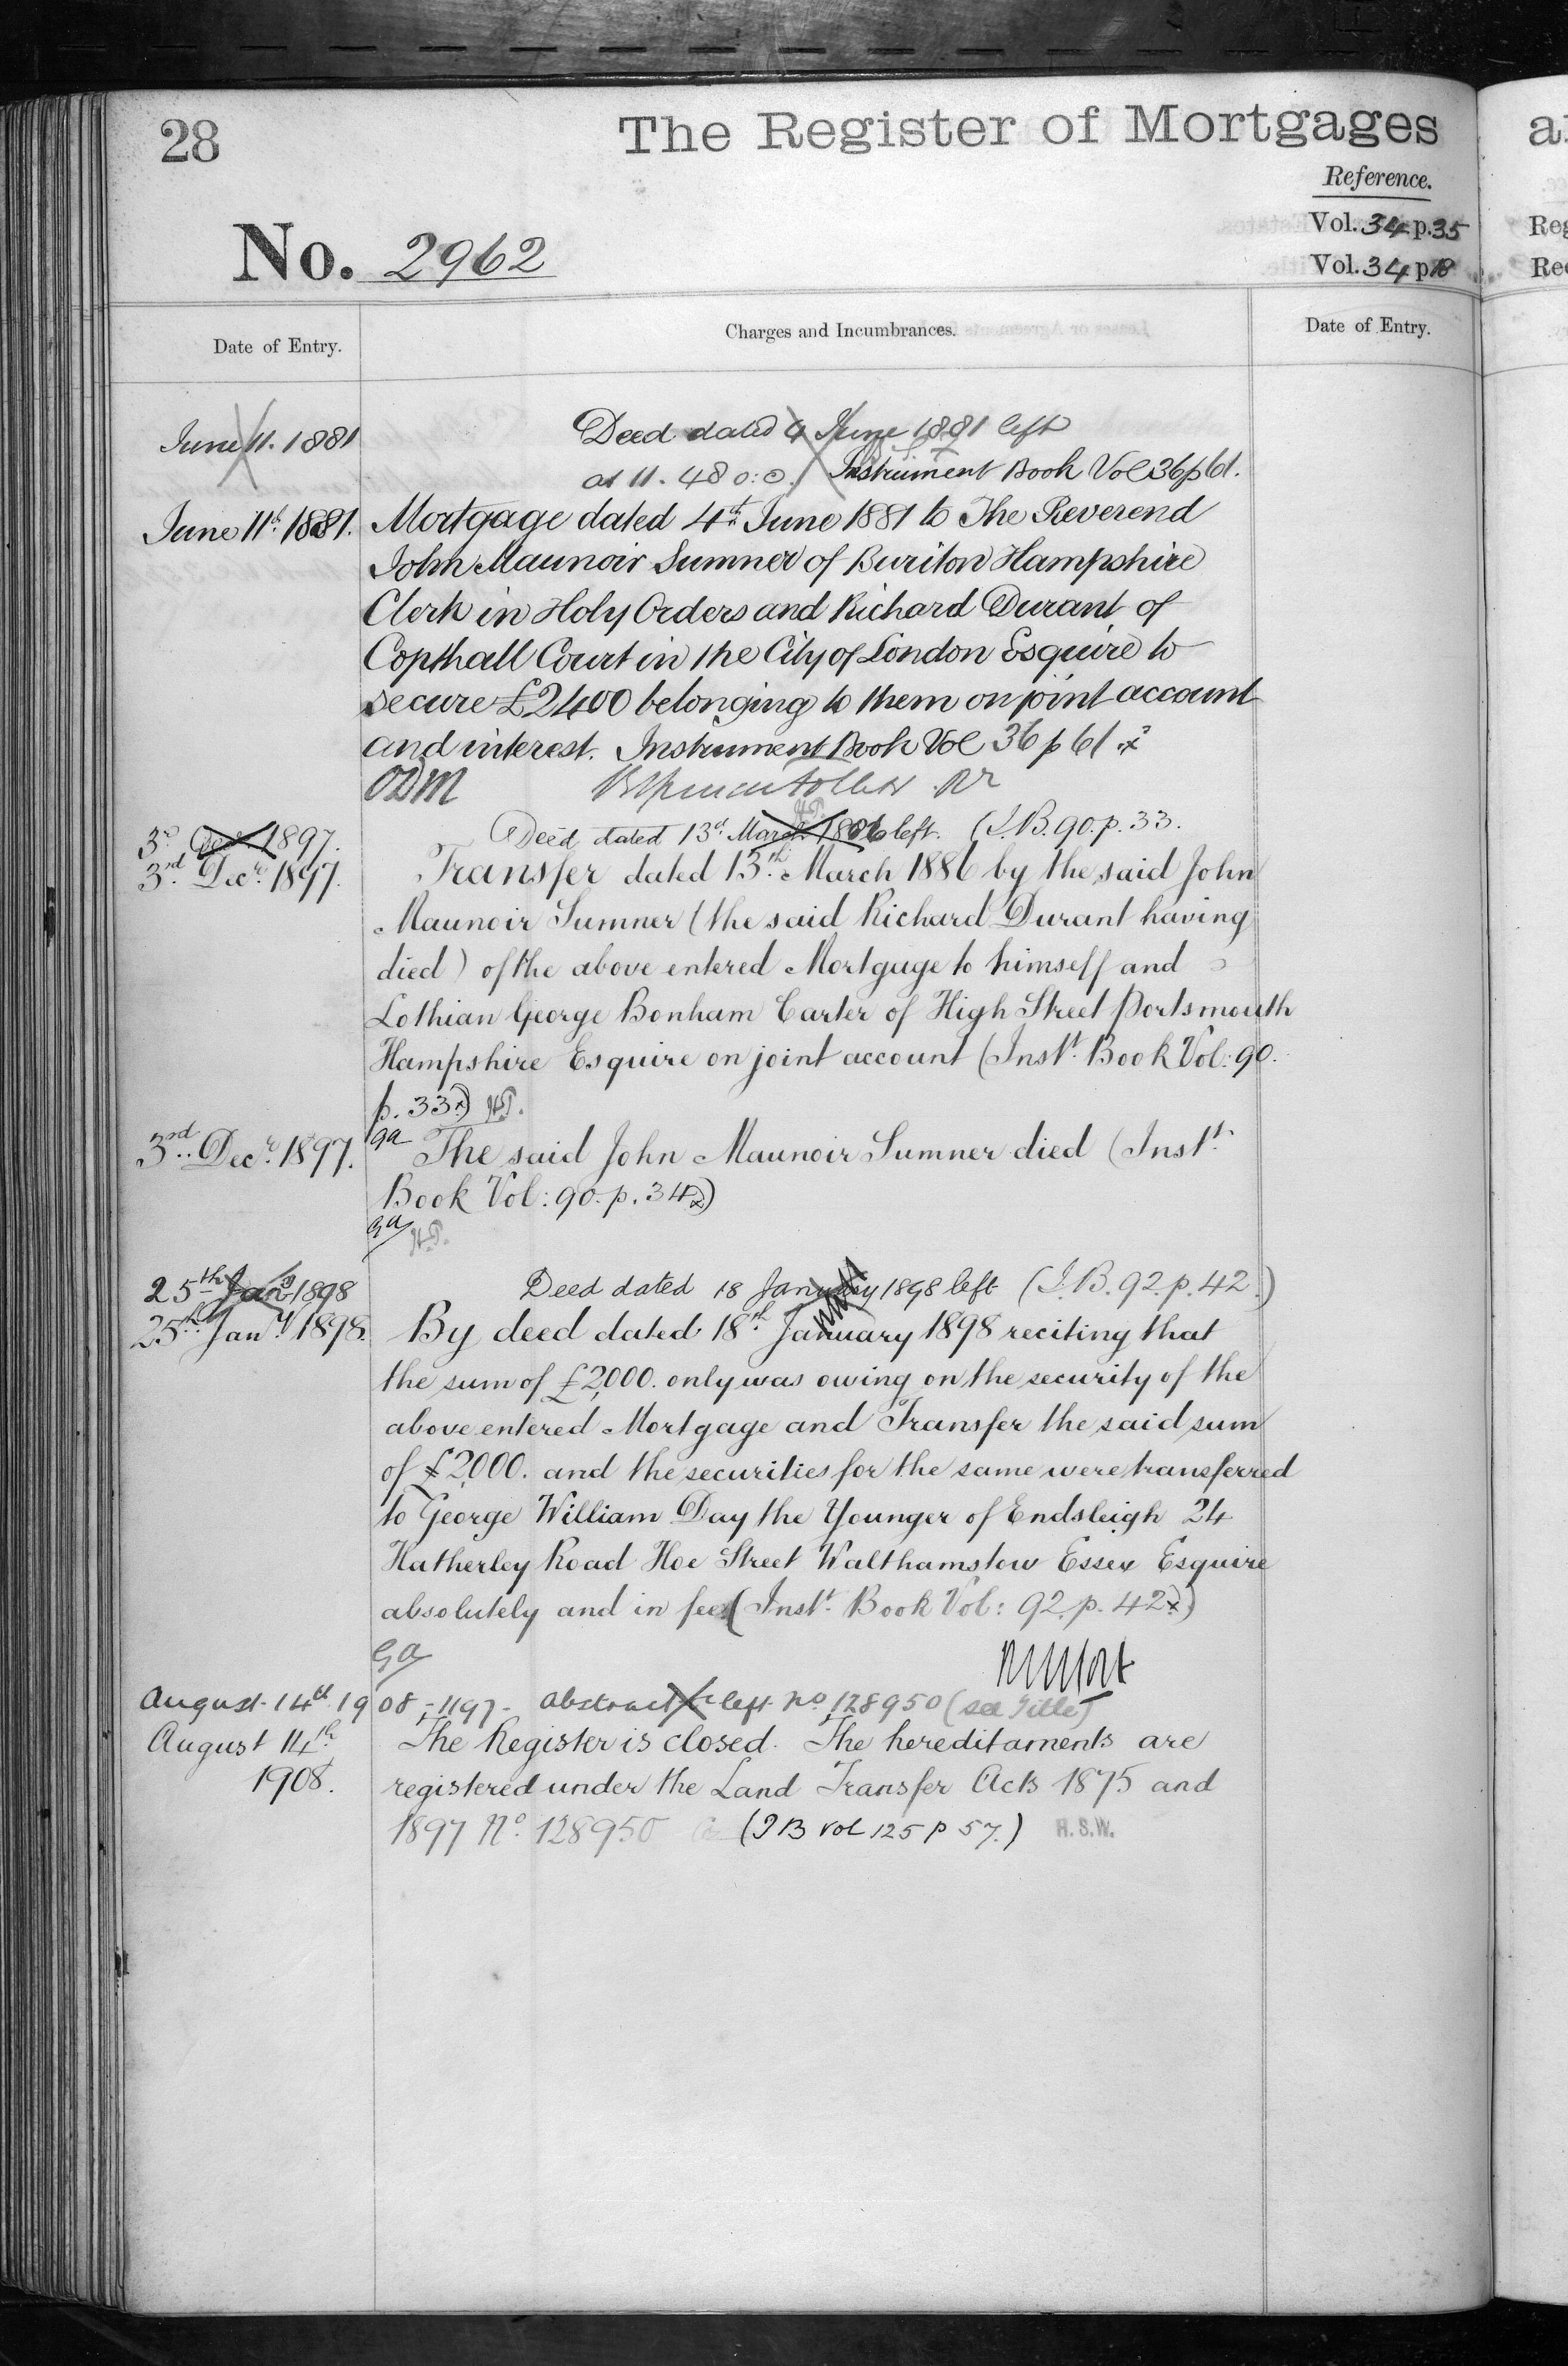 28
The Register of Mortgages
Reference.
Vol. 34 p. 35
Vol. 34 p 18
No. 2962
Date of Entry.
Charges and Incumbrances.
Date of Entry.
June 11. 1881
Deed dated 4 June 1881 left
at 11. 48 o:c. Instrument Book Vol 36 p 61.
June 11th 1881. Mortgage dated 4th June 1881 to The Reverend
John Maunoir Sumner of Buriton Hampshire
Clerk in Holy Orders and Richard Durant of
Copthall Court in the City of London Esquire to
secure £2400 belonging to them on joint account
and interest. Instrument Book Vol 36 p 61.
ODM
3rd Dec 1897.
Deed dated 13th March 1886 left. (I.B. 90. p. 33.
3rd Decr 1897. Transfer dated 13th March 1886 by the said John
Maunoir Sumner (the said Richard Durant having
died) of the above entered Mortgage to himself and
Lothian George Bonham Carter of High Street Portsmouth
Hampshire Esquire on joint account (Inst. Book Vol: 90.
p. 33) H.P.
ga
3rd Decr 1897. The said John Maunoir Sumner died (Inst.
Book Vol: 90. p. 34)
ga H.P.
25th Jany 1898 Deed dated 18 January 1898 left (I.B. 92. p. 42.)
25th Jany 1898. By deed dated 18th January 1898 reciting that
the sum of £2,000. only was owing on the security of the
above entered Mortgage and Transfer the said sum
of £2,000. and the securities for the same were transferred
to George William Day the Younger of Endsleigh 24
Hatherley Road Hoe Street Walthamstow Essex Esquire
absolutely and in fee (Inst. Book Vol: 92. p. 42)
ga
August 14th 1908 - 1197 - abstract left No 128950 (see Title)
August 14th
1908.
The Register is closed. The hereditaments are
registered under the Land Transfer Acts 1875 and
1897 No. 128950 (I B Vol 125 p 57.) R.S.W.
a
Reg
Re